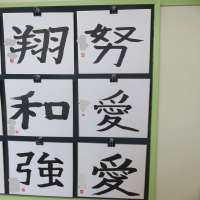 翔 努
和 愛
強 愛